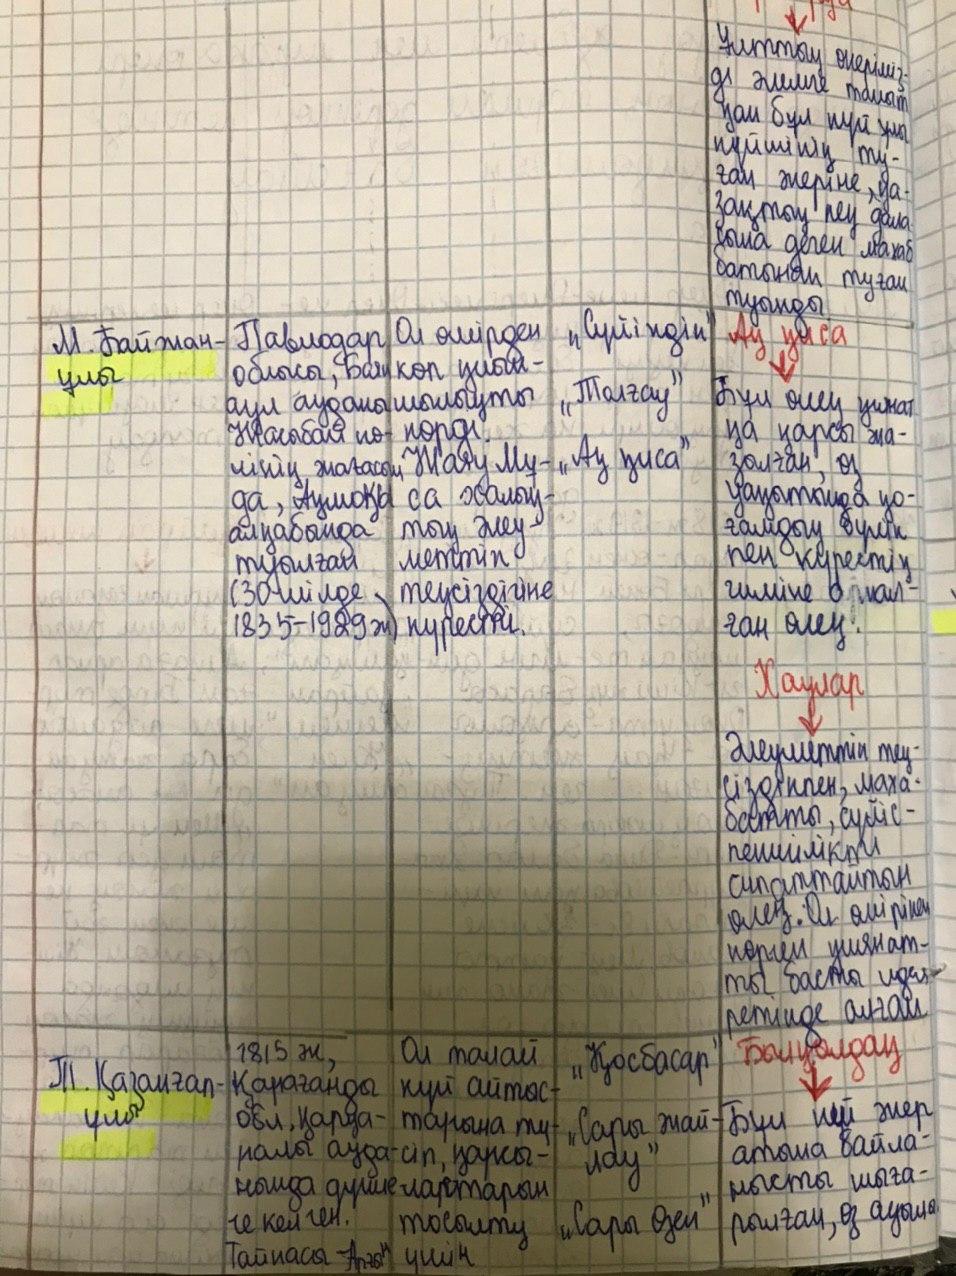 Ұлттық өнеріміз-
ді әлемге таныт
қан бұл күй ұлы
күйшінің ту-
ған жеріне, қа-
зақтың кең дала
сына деген махаб
батынан туған
туынды
М. Байжан-
ұлы
Павлодар
облысы, Баян
аул ауданы
Жасыбай кө-
лінің жағасын
да, Ақмоқы
алқабында
туылған
(30 шілде
1835-1929ж)
Ол өмірден
көп қиын-
шылықты
көрді.
Жаяу Му-
са халық-
тың әлеу-
меттік
теңсіздігіне
күресті.
„Сүйіндік"
„Толғау"
„Ақ қиса"
Ақ қиса
Бұл өлең қианат
қа қарсы жа-
зылған, өз
уақытында қо-
ғамдық бүлік
пен күрестің
гиміне айнал-
ған өлең.
Хаулар
Әлеуметтік тең-
сіздікпен, маха-
ббатты, сүйіс-
пеншілікті
сипаттайтын
өлең. Ол өмірінен
көрген қиянат-
ты басты идея
ретінде алған
Т. Қазанғап-
ұлы
1815 ж,
Қарағанды
обл, қарқа-
ралы ауда-
нында дүние
ге келген.
Тайпасы - Арғын
Ол талай
күй айтыс-
тарына тү-
сіп, қарсы-
ластарын
тосылту
үшін
„Қосбасар"
„Сары жай-
лау"
„Сары өзен"
Былқылдақ
Бұл күй жер
атына байла-
нысты шыға-
рылған, өз ауылы